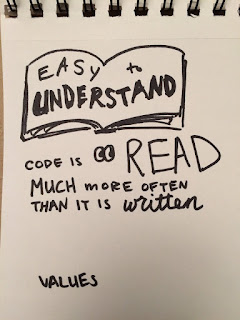 EASY to
UNDERSTAND
CODE IS READ
MUCH MORE OFTEN
THAN IT IS written
VALUES